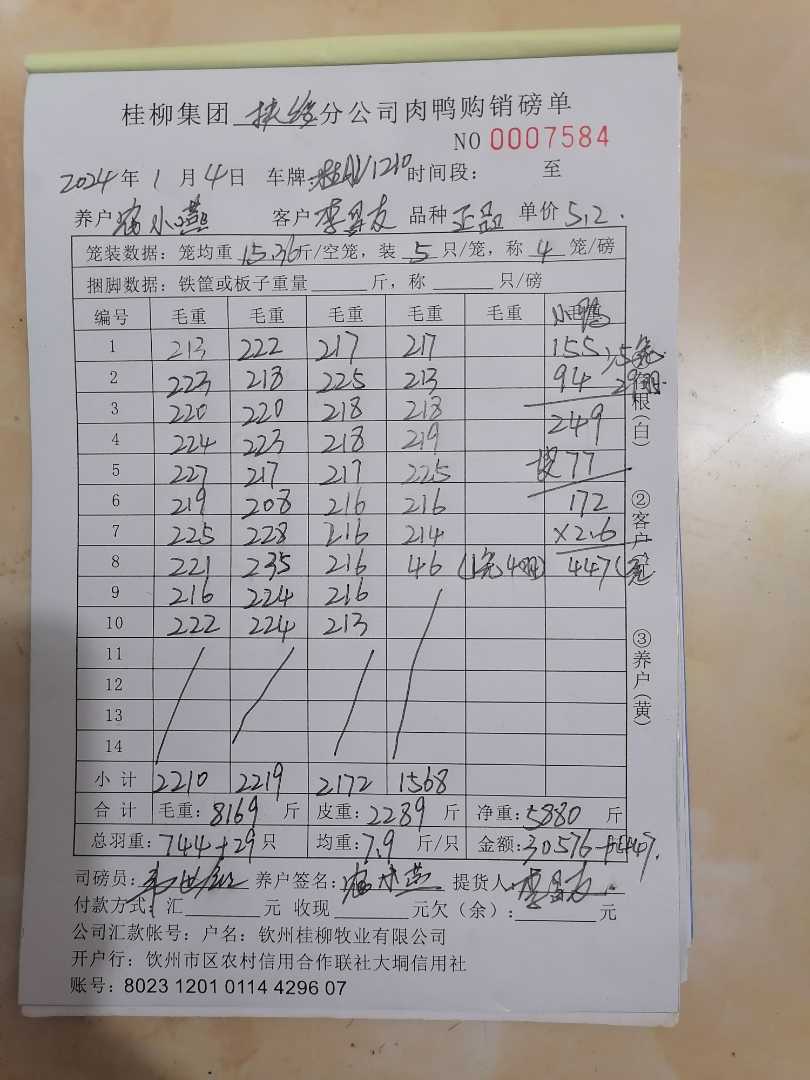 桂柳集团 扶绥 分公司肉鸭购销磅单
NO 0007584
2024年 1月 4日 车牌: 1210 时间段: 至
养户 小燕 客户 李 友 品种 正品 单价 5.2.
笼装数据: 笼均重 15.36 斤/空笼, 装 5 只/笼, 称 4 笼/磅
捆脚数据: 铁筐或板子重量 斤, 称 只/磅
编号 毛重 毛重 毛重 毛重 毛重 小鸭
1 213 222 217 217 155 5笼
2 223 218 225 213 94 29羽
3 220 220 218 218 249
4 224 223 218 219
5 227 217 217 225 77
6 219 208 216 216 172
7 225 228 216 214 ×2.6
8 221 235 216 46 (1笼4羽) 447
9 216 224 216
10 222 224 213
11
12
13
14
小计 2210 2219 2172 1568
合计 毛重: 8169 斤 皮重: 2289 斤 净重: 5880 斤
总羽重: 744+29 只 均重: 7.9 斤/只 金额: 30576 447.
司磅员: 养户签名: 小燕 提货人: 李 友
付款方式: 汇 元 收现 元欠(余): 元
公司汇款帐号: 户名: 钦州桂柳牧业有限公司
开户行: 钦州市区农村信用合作联社大垌信用社
账号: 8023 1201 0114 4296 07
根(白)
②客户
③养户(黄)